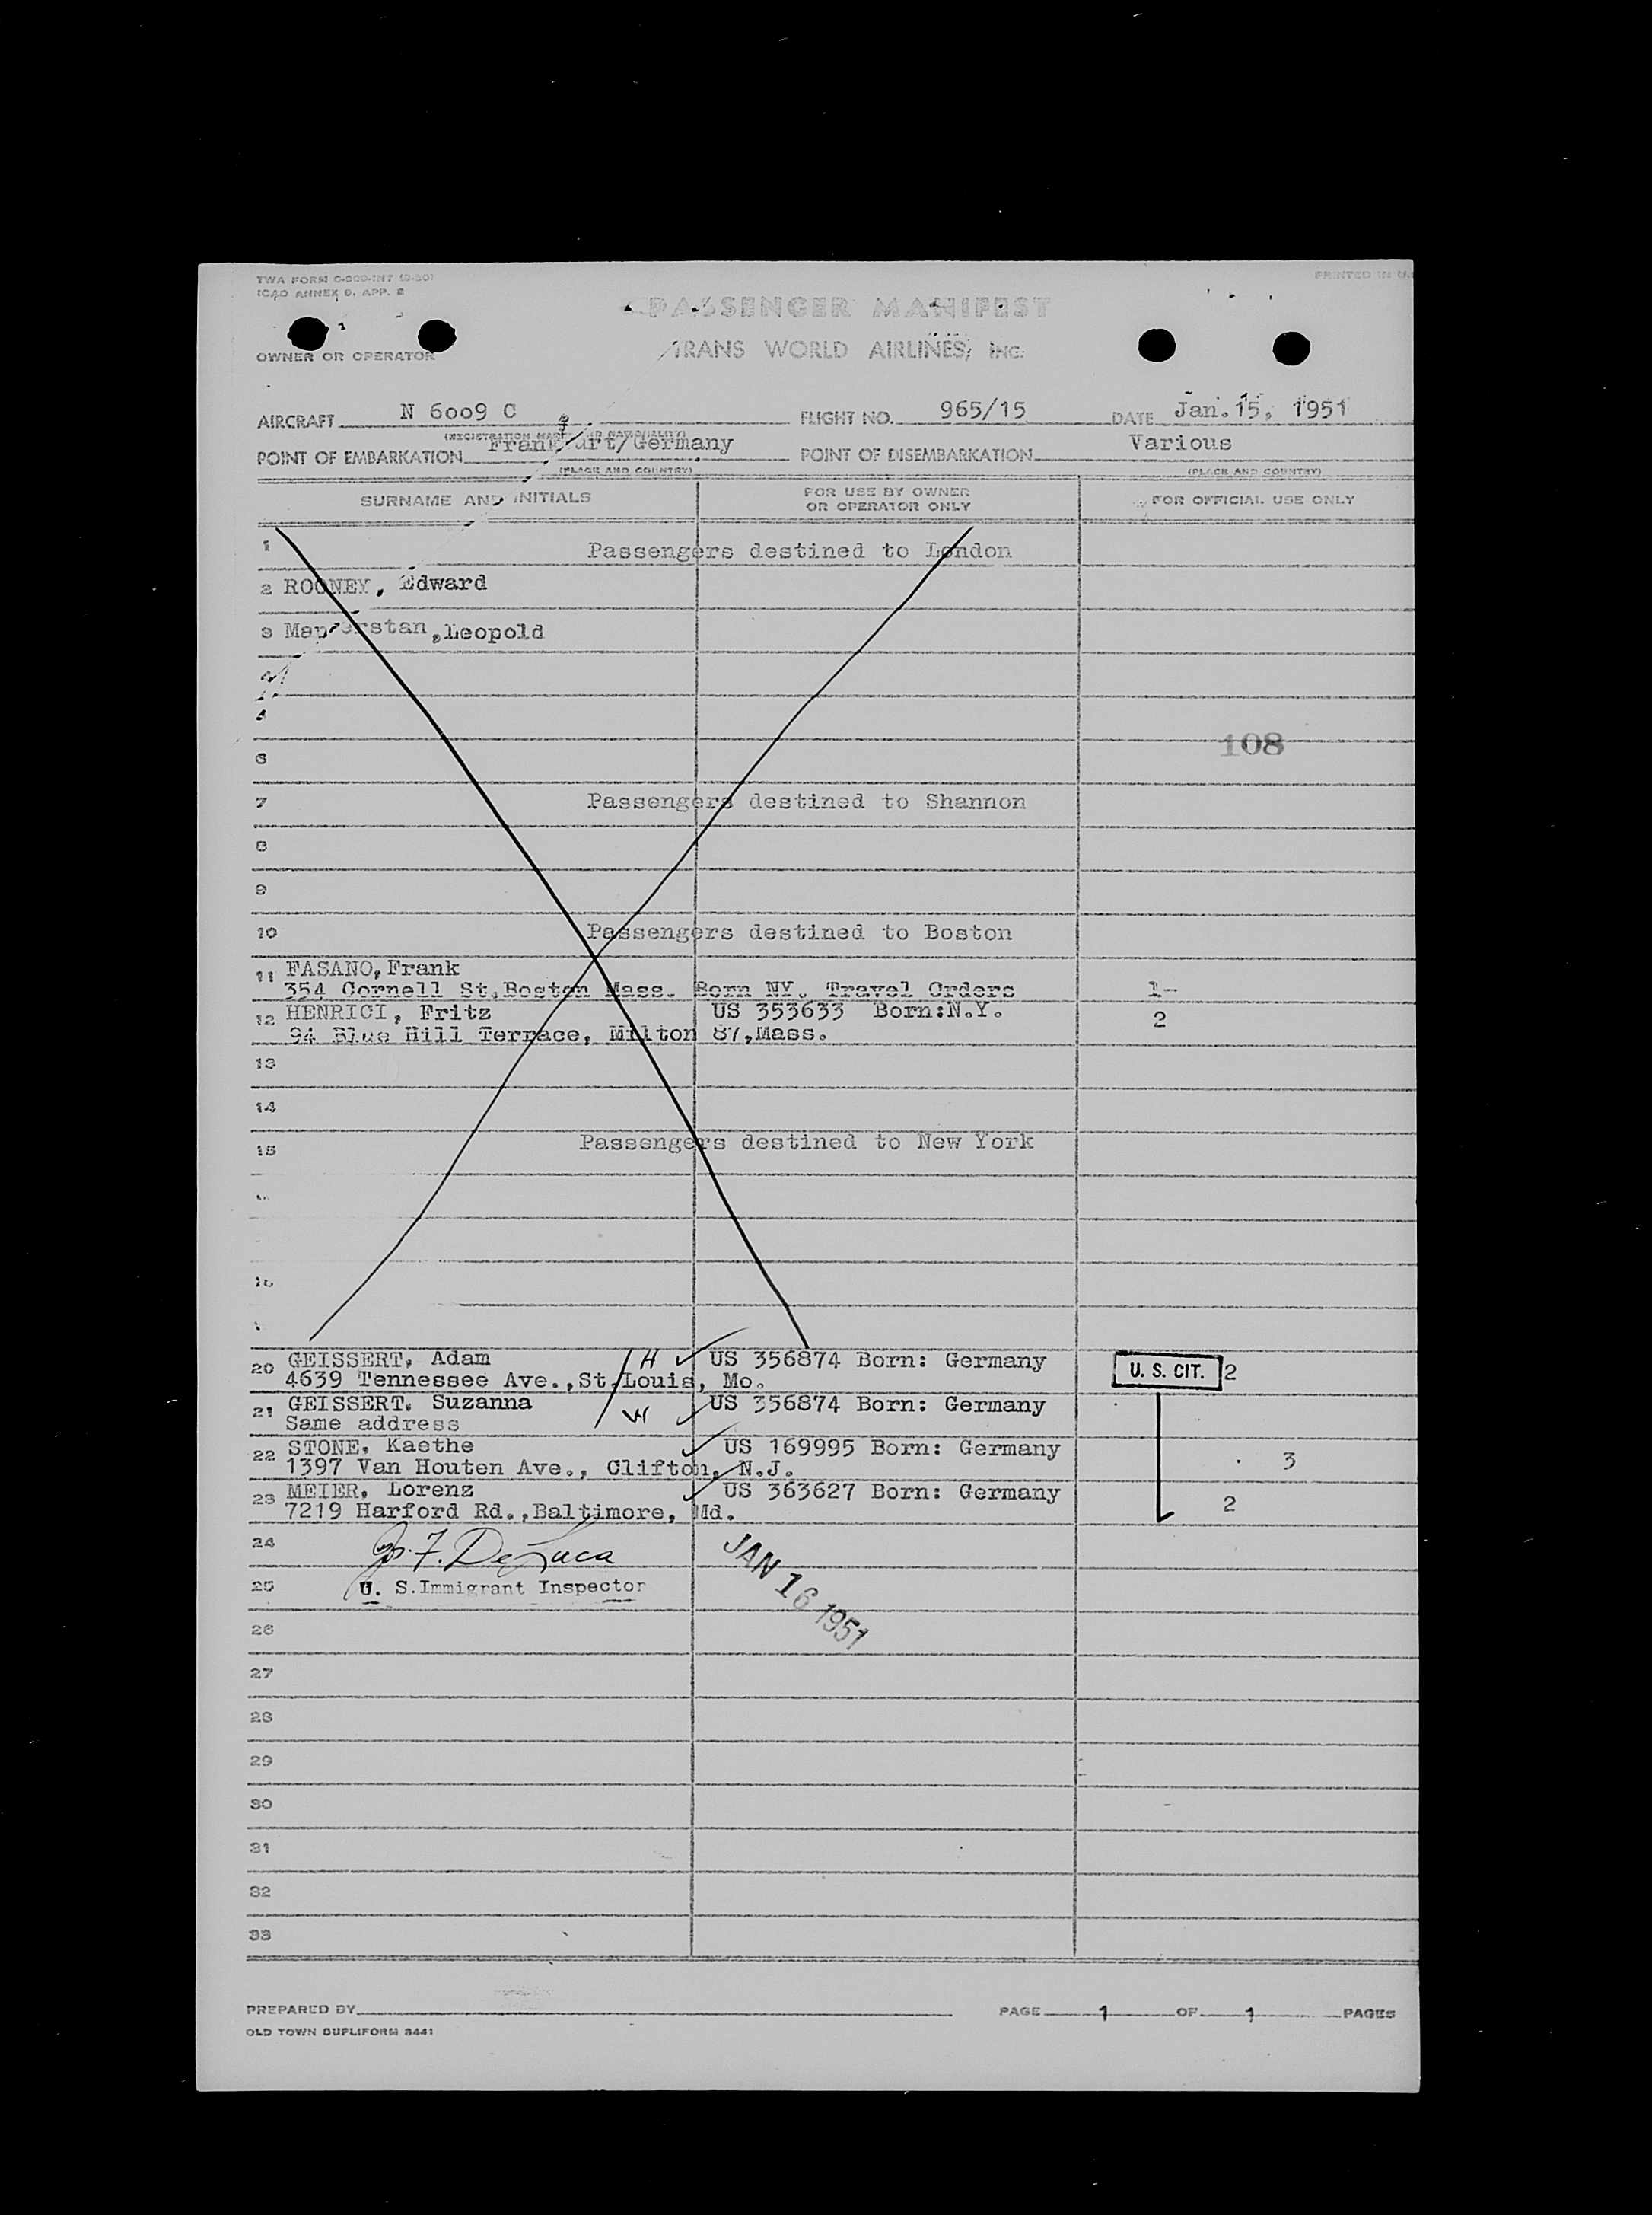 TWA FORM
ICAO ANNEX 9, APP. E
PRINTED IN U.
PASSENGER MANIFEST
TRANS WORLD AIRLINES, INC.
OWNER OR OPERATOR
AIRCRAFT N 6009 C FLIGHT NO. 965/15 DATE Jan. 15, 1951
POINT OF EMBARKATION Frankfurt/Germany POINT OF DISEMBARKATION Various
(PLACE AND COUNTRY) (PLACE AND COUNTRY)
SURNAME AND INITIALS FOR USE BY OWNER OR OPERATOR ONLY FOR OFFICIAL USE ONLY
1 Passengers destined to London
2 ROONEY, Edward
3 Leopold
6 108
7 Passengers destined to Shannon
8
9
10 Passengers destined to Boston
11 FASANO, Frank
354 Cornell St. Boston Mass. Born NY. Travel Orders 1-
12 HENRICI, Fritz US 353633 Born: N.Y. 2
94 Blue Hill Terrace, Milton 87, Mass.
13
14
15 Passengers destined to New York
20 GEISSERT, Adam H US 356874 Born: Germany U. S. CIT. 2
4639 Tennessee Ave., St. Louis, Mo.
21 GEISSERT, Suzanna W US 356874 Born: Germany
Same address
22 STONE, Kaethe US 169995 Born: Germany 3
1397 Van Houten Ave., Clifton, N.J.
23 MEIER, Lorenz US 363627 Born: Germany 2
7219 Harford Rd., Baltimore, Md.
24 F. DeLuca
25 U. S. Immigrant Inspector JAN 16 1951
26
27
28
29
30
31
32
33
PREPARED BY PAGE 1 OF 1 PAGES
OLD TOWN DUPLIFORM 3441